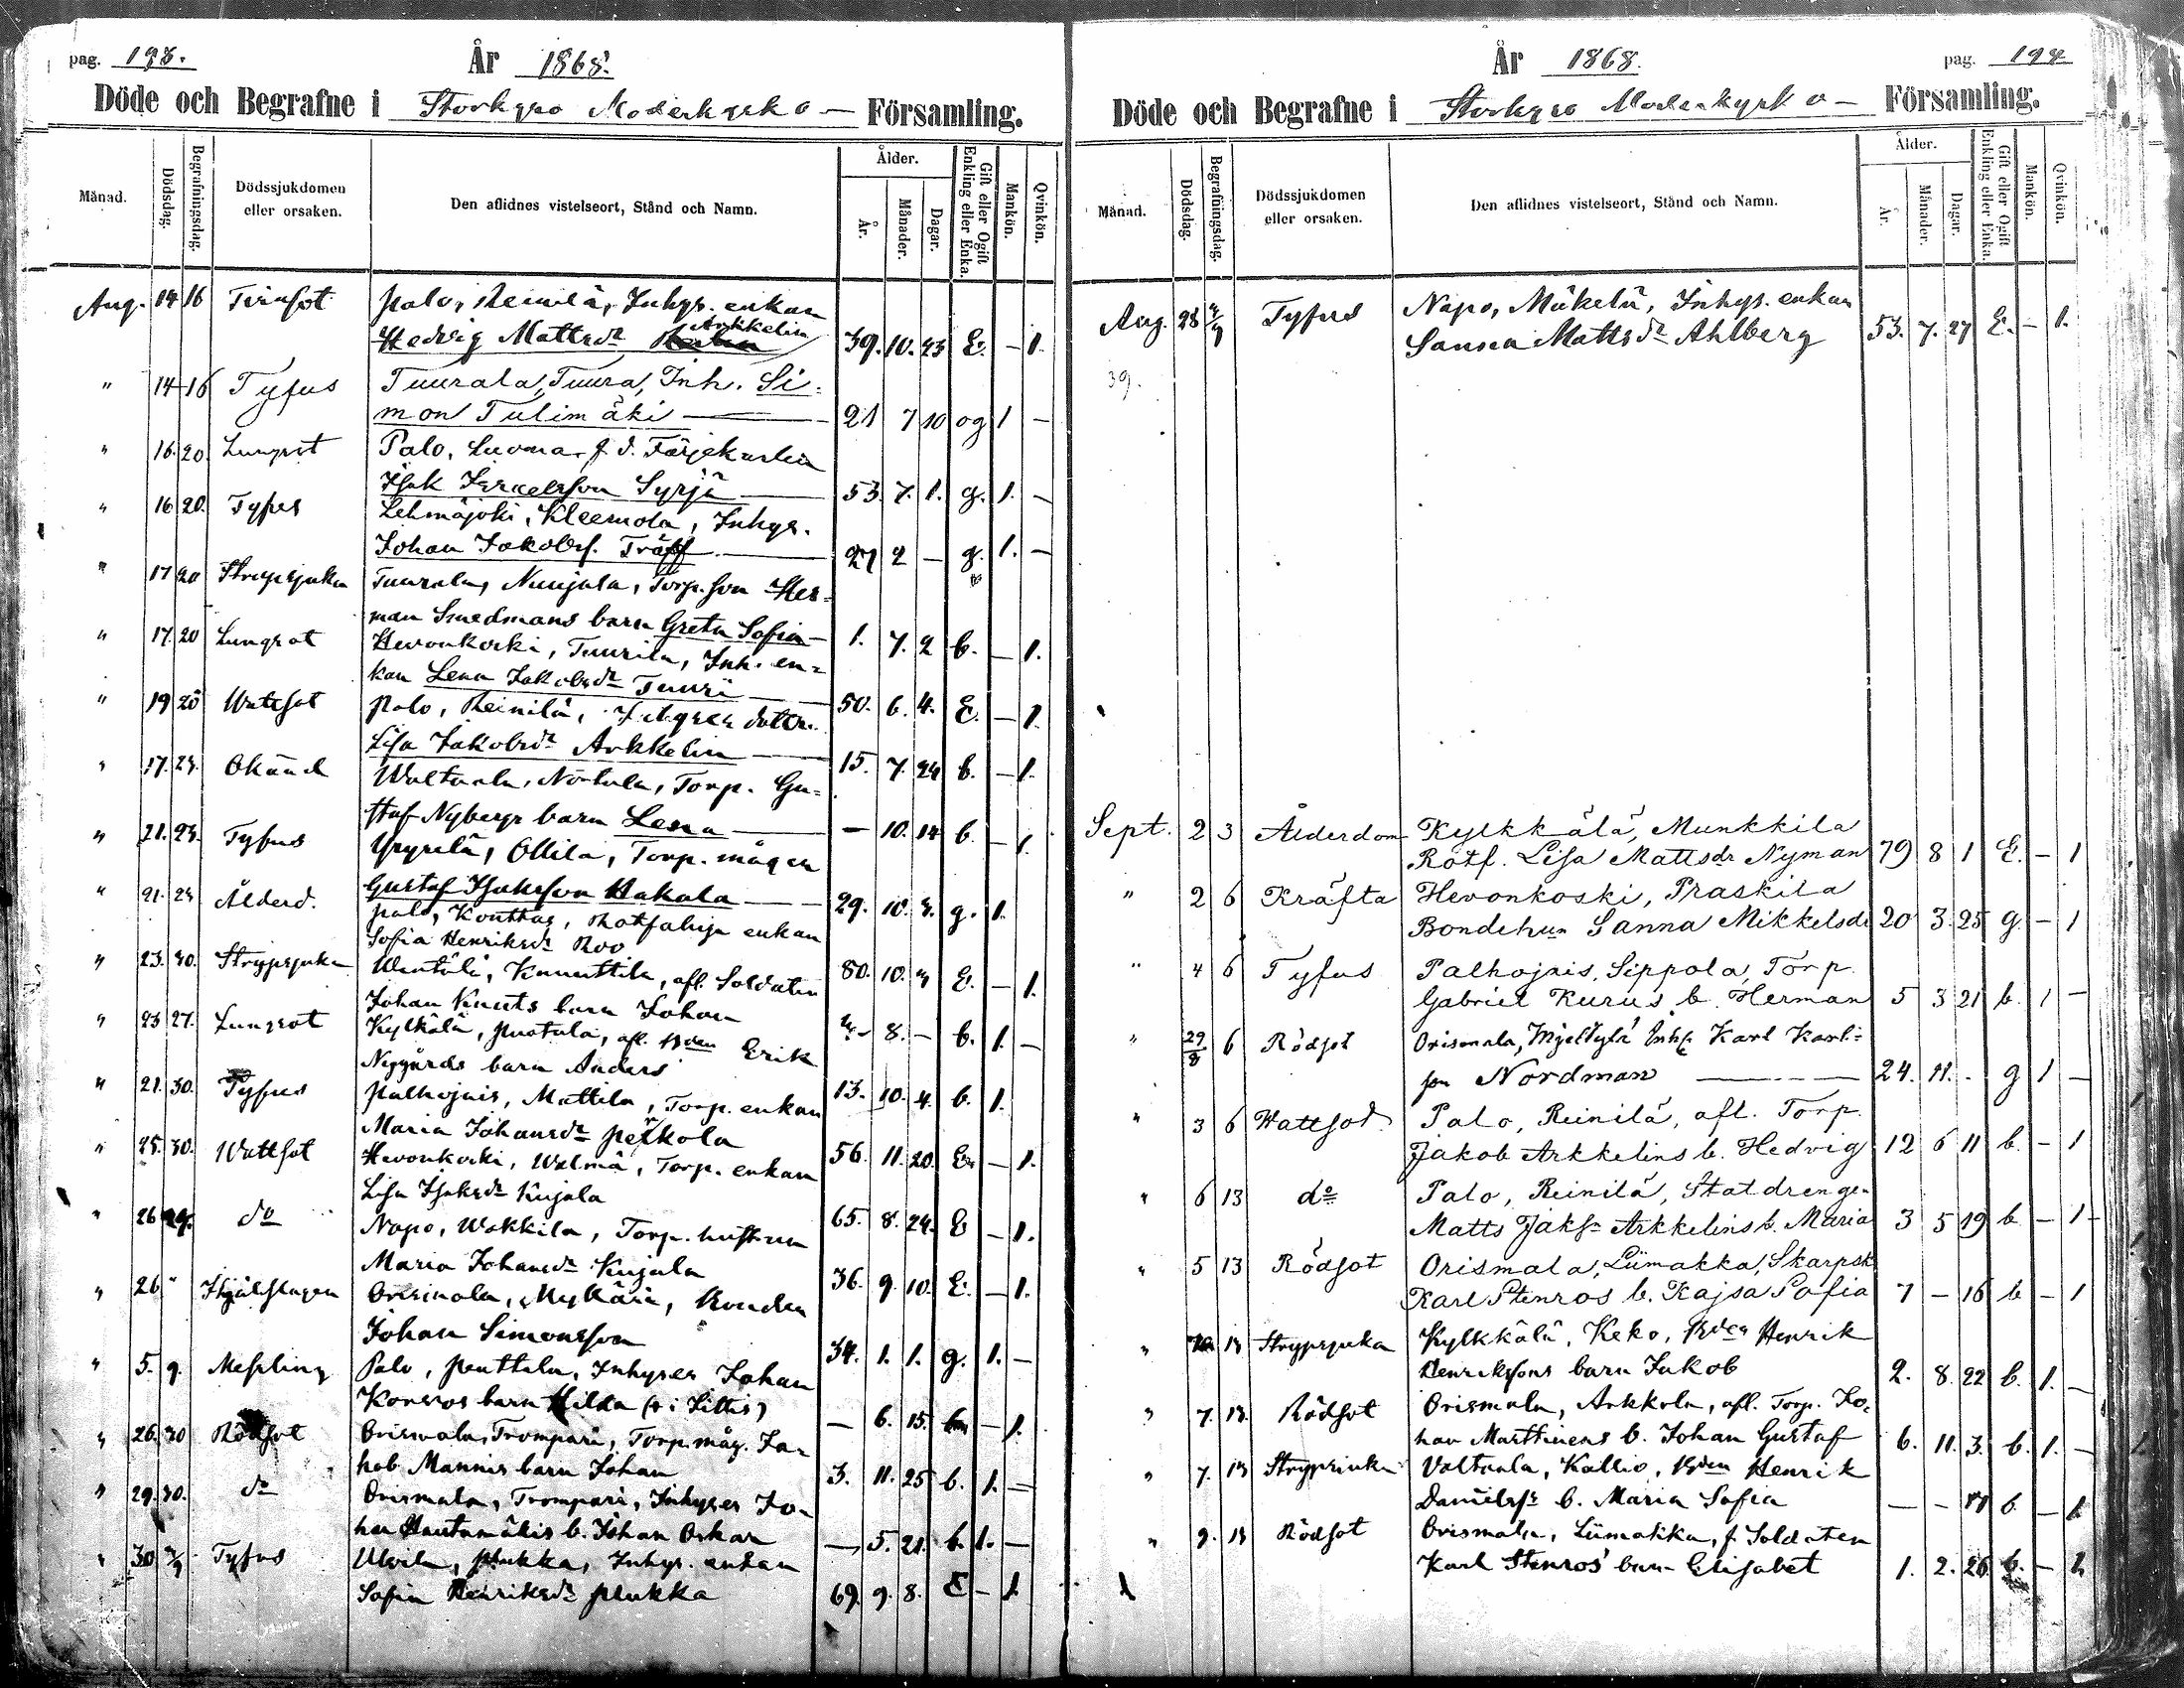 pag. 193.
År 1868.
Döde och Begrafne i Storkyro Moderkyrko Församling.
Månad. Dödsdag. Begrafningsdag. Dödssjukdomen eller orsaken. Den aflidnes vistelseort, Stånd och Namn. Ålder. År. Månader. Dagar. Gift eller Ogift Enkling eller Enka. Mankön. Qvinkön.
Aug. 14 16 Palo, Reinilä, Inhys. enkan
Hedvig Mattsdr Arkkelin 39. 10. 23 E. — 1.
" 14 16 Tyfus Tuurala, Tuura, Inh. Si-
mon Tulimäki — 21 7 10 og 1 —
" 16. 20. Lungsot Palo, Luoma, f. d. Färjekarlen
Isak Israelsson Syrjä — 53. 7. 1. g. 1. —
" 16 20. Tyfus Lehmäjoki, Kleemola, Inhys.
Johan Jakobsf. Träff — 27 2 — g. 1. —
" 17 20 Strypsjuka Tuurala, Nuijala, Torp. son Her-
man Smedmans barn Greta Sofia — 1. 7. 2 b. — 1.
" 17. 20 Lungsot Hevonkoski, Tuurila, Inh. en-
kan Lena Jakobsdr Tuuri — 50. 6. 4. E. — 1.
" 19 20 Wattsot Palo, Reinilä, Inhyses dotter
Lisa Jakobsdr Arkkelin — 15. 7. 24 b. — 1.
" 17. 23. Okänd Waltaala, Torp. Gu-
staf Nybergs barn Lena — — 10. 14 b. — 1.
" 21. 23. Tyfus Yryselä, Ollila, Torp. mågen
Gustaf Isaksson Hakala — 29. 10. g. 1.
" 21. 23 Ålderd. Palo, Kouttas, Rotfattiga enkan
Sofia Henriksdr Roo 80. 10. E. — 1.
" 23. 30. Strypsjuka Wentälä, Knuuttila, afl. Soldaten
Johan Knuts barn Johan 8. — b. 1. —
" 23 27. Lungsot Kylkälä, Puotala, afl. Bden Erik
Nygårds barn Anders 13. 10. 4. b. 1.
" 21. 30. Tyfus Palhojais, Mattila, Torp. enkan
Maria Johansdr Peikola 56. 11. 20. E. — 1.
" 25. 30. Wattsot Hevonkoski, Walmä, Torp. enkan
Lisa Isaksdr Kujala 65. 8. 24. E — 1.
" 26 29. do Napo, Wakkila, Torp. hustrun
Maria Johansdr Kujala 36. 9. 10. E. — 1.
" 26 " Ihjälslagen Orismala, Mylläri, Bonden
Johan Simonsson 34. 1. 1. g. 1. —
" 5. 9. Messling Palo, Penttala, Inhyses Johan
barn Hilda — 6. 15. — 1.
" 26. 30 Rödsot Orismala, Trompari, Torp. måg. Ja-
kob Mannis barn Johan 3. 11. 25 b. 1. —
" 29. 30. do Orismala, Trompari, Inhyses Jo-
han Hautamäkis b. Johan Oskar — 5. 21. b. 1. —
" 30 Tyfus Ulvila, Plukka, Inhys. enkan
Sofia Henriksdr Plukka 69. 9. 8. E — 1.
År 1868.
pag. 194
Döde och Begrafne i Storkyro Moderkyrko Församling.
Månad. Dödsdag. Begrafningsdag. Dödssjukdomen eller orsaken. Den aflidnes vistelseort, Stånd och Namn. Ålder. År. Månader. Dagar. Gift eller Ogift Enkling eller Enka. Mankön. Qvinkön.
Aug. 28 Tyfus Napo, Mäkelä, Inhys. enkan
Sanna Mattsdr Ahlberg 53. 7. 27 E. — 1.
39.
Sept. 2 3 Ålderdom Kylkkälä, Munkkila
Rotf. Lisa Mattsdr Nyman 79 8 1 E. — 1
" 2 6 Kräfta Hevonkoski, Praskila
Bondehun Sanna Mikkelsdr 20 3. 25 g — 1
" 4 6 Tyfus Palhojais, Sippola, Torp.
Gabriel Kurus b. Herman 5 3 21 b. 1 —
" 29/8 6 Rödsot Orismala, Inhs. Karl Karls-
son Nordman — 24. 11. - g 1 —
" 3 6 Wattsot Palo, Reinilä, afl. Torp.
Jakob Arkkelins b. Hedvig 12 6 11 b. — 1
" 6 13 do Palo, Reinilä, Statdrengen
Matts Jaksn Arkkelins b. Maria 3 5 19 b — 1
" 5 13 Rödsot Orismala, Liimakka, Skarpsk
Karl Stenros b. Kajsa Sofia 7 — 16 b — 1
" 13 Strypsjuka Kylkkälä, Keko, Bden Henrik
Henrikssons barn Jakob 2. 8. 22 b. 1. —
" 7. 13. Rödsot Orismala, Arkkola, afl. Torp. Jo-
han Marttinens b. Johan Gustaf 6. 11. 3. b. 1. —
" 7. 13 Strypsjuka Valtaala, Kallio, Bden Henrik
Danielssns b. Maria Sofia — — 11 b — 1.
" 9. 13 Rödsot Orismala, Liimakka, f. Soldaten
Karl Stenros barn Elisabet 1. 2. 26. b. — 1.